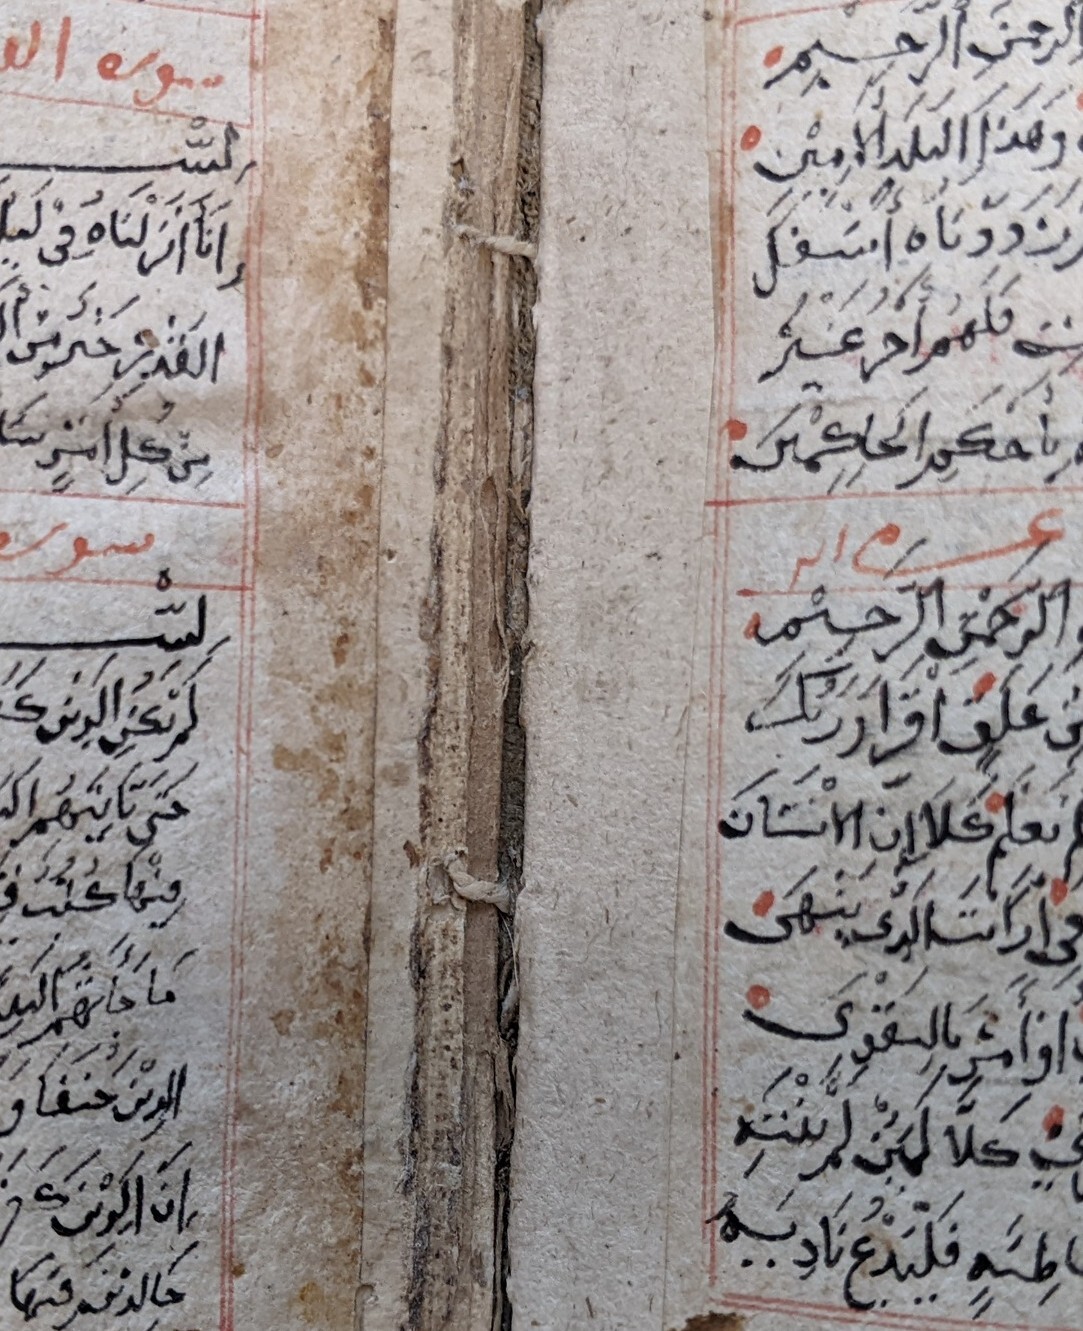 الرحمن الرحيم
وهذا البلد الامين
رددناه أسفل
فلهم أجر غير
بأحكم الحاكمين
الرحمن الرحيم
علق اقرا وربك
يعلم كلا إن الانسان
ارأيت الذي ينهى
او أمر بالتقوى
كلا لين لم ينته
فليدع ناديه
سورة
إنا أنزلناه في ليلة
القدر خير من
من كل أمر سلا
سورة
لم يكن الذين
حتى تأتيهم
فيها كتب
ما جاءتهم
الدين حنفا و
إن الذين
خالدين فيها